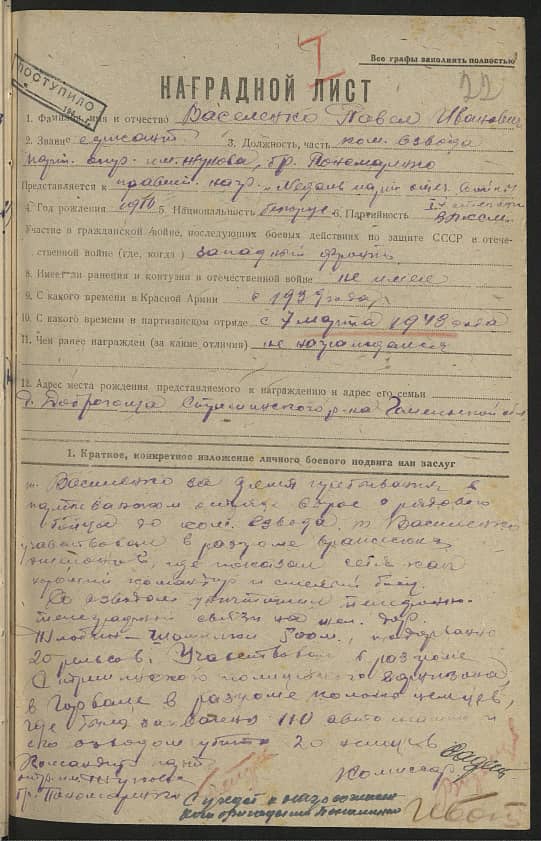 1
Все графы заполнять полностью
22
ПОСТУПИЛО
НАГРАДНОЙ ЛИСТ
1. Фамилия, имя и отчество Василенко Павел Иванович
2. Звание сержант 3. Должность, часть ком. взвода
парт. отр. им. Жукова, бр. Пономаренко
Представляется к правит. нагр. "Медаль парт. отеч. войны"
4. Год рождения 5. Национальность белорус 6. Партийность
Участие в гражданской войне, последующих боевых действиях по защите СССР в отече-
ственной войне (где, когда) западный фронт
8. Имеет ли ранения и контузии в отечественной войне не имеет
9. С какого времени в Красной Армии с 1939 года
10. С какого времени в партизанском отряде с 7 марта 1943 года
11. Чем ранее награжден (за какие отличия) не награждался
12. Адрес места рождения представляемого к награждению и адрес его семьи
д. Доброгоща Стрешинского р-на Гомельской обл
1. Краткое, конкретное изложение личного боевого подвига или заслуг
т. Василенко за время пребывания в
партизанском отряде вырос с рядового
бойца до ком. взвода. т. Василенко
участвовал в разгроме вражеских
гарнизонов, где показал себя как
хороший командир и смелый боец.
Со взводом уничтожил телефонно-
телеграфной связи на жел. дор.
Жлобин 500 м., подорвано
20 рельсов. Участвовал в разгроме
Стрешинского гарнизона,
в Горвале в разгроме колонны немцев,
где было захвачено 110 автомашин и
его взводом убито 20 немцев
Командир парт.
отр. им. Жукова
бр. Пономаренко
Комиссар
С учетом и награждением